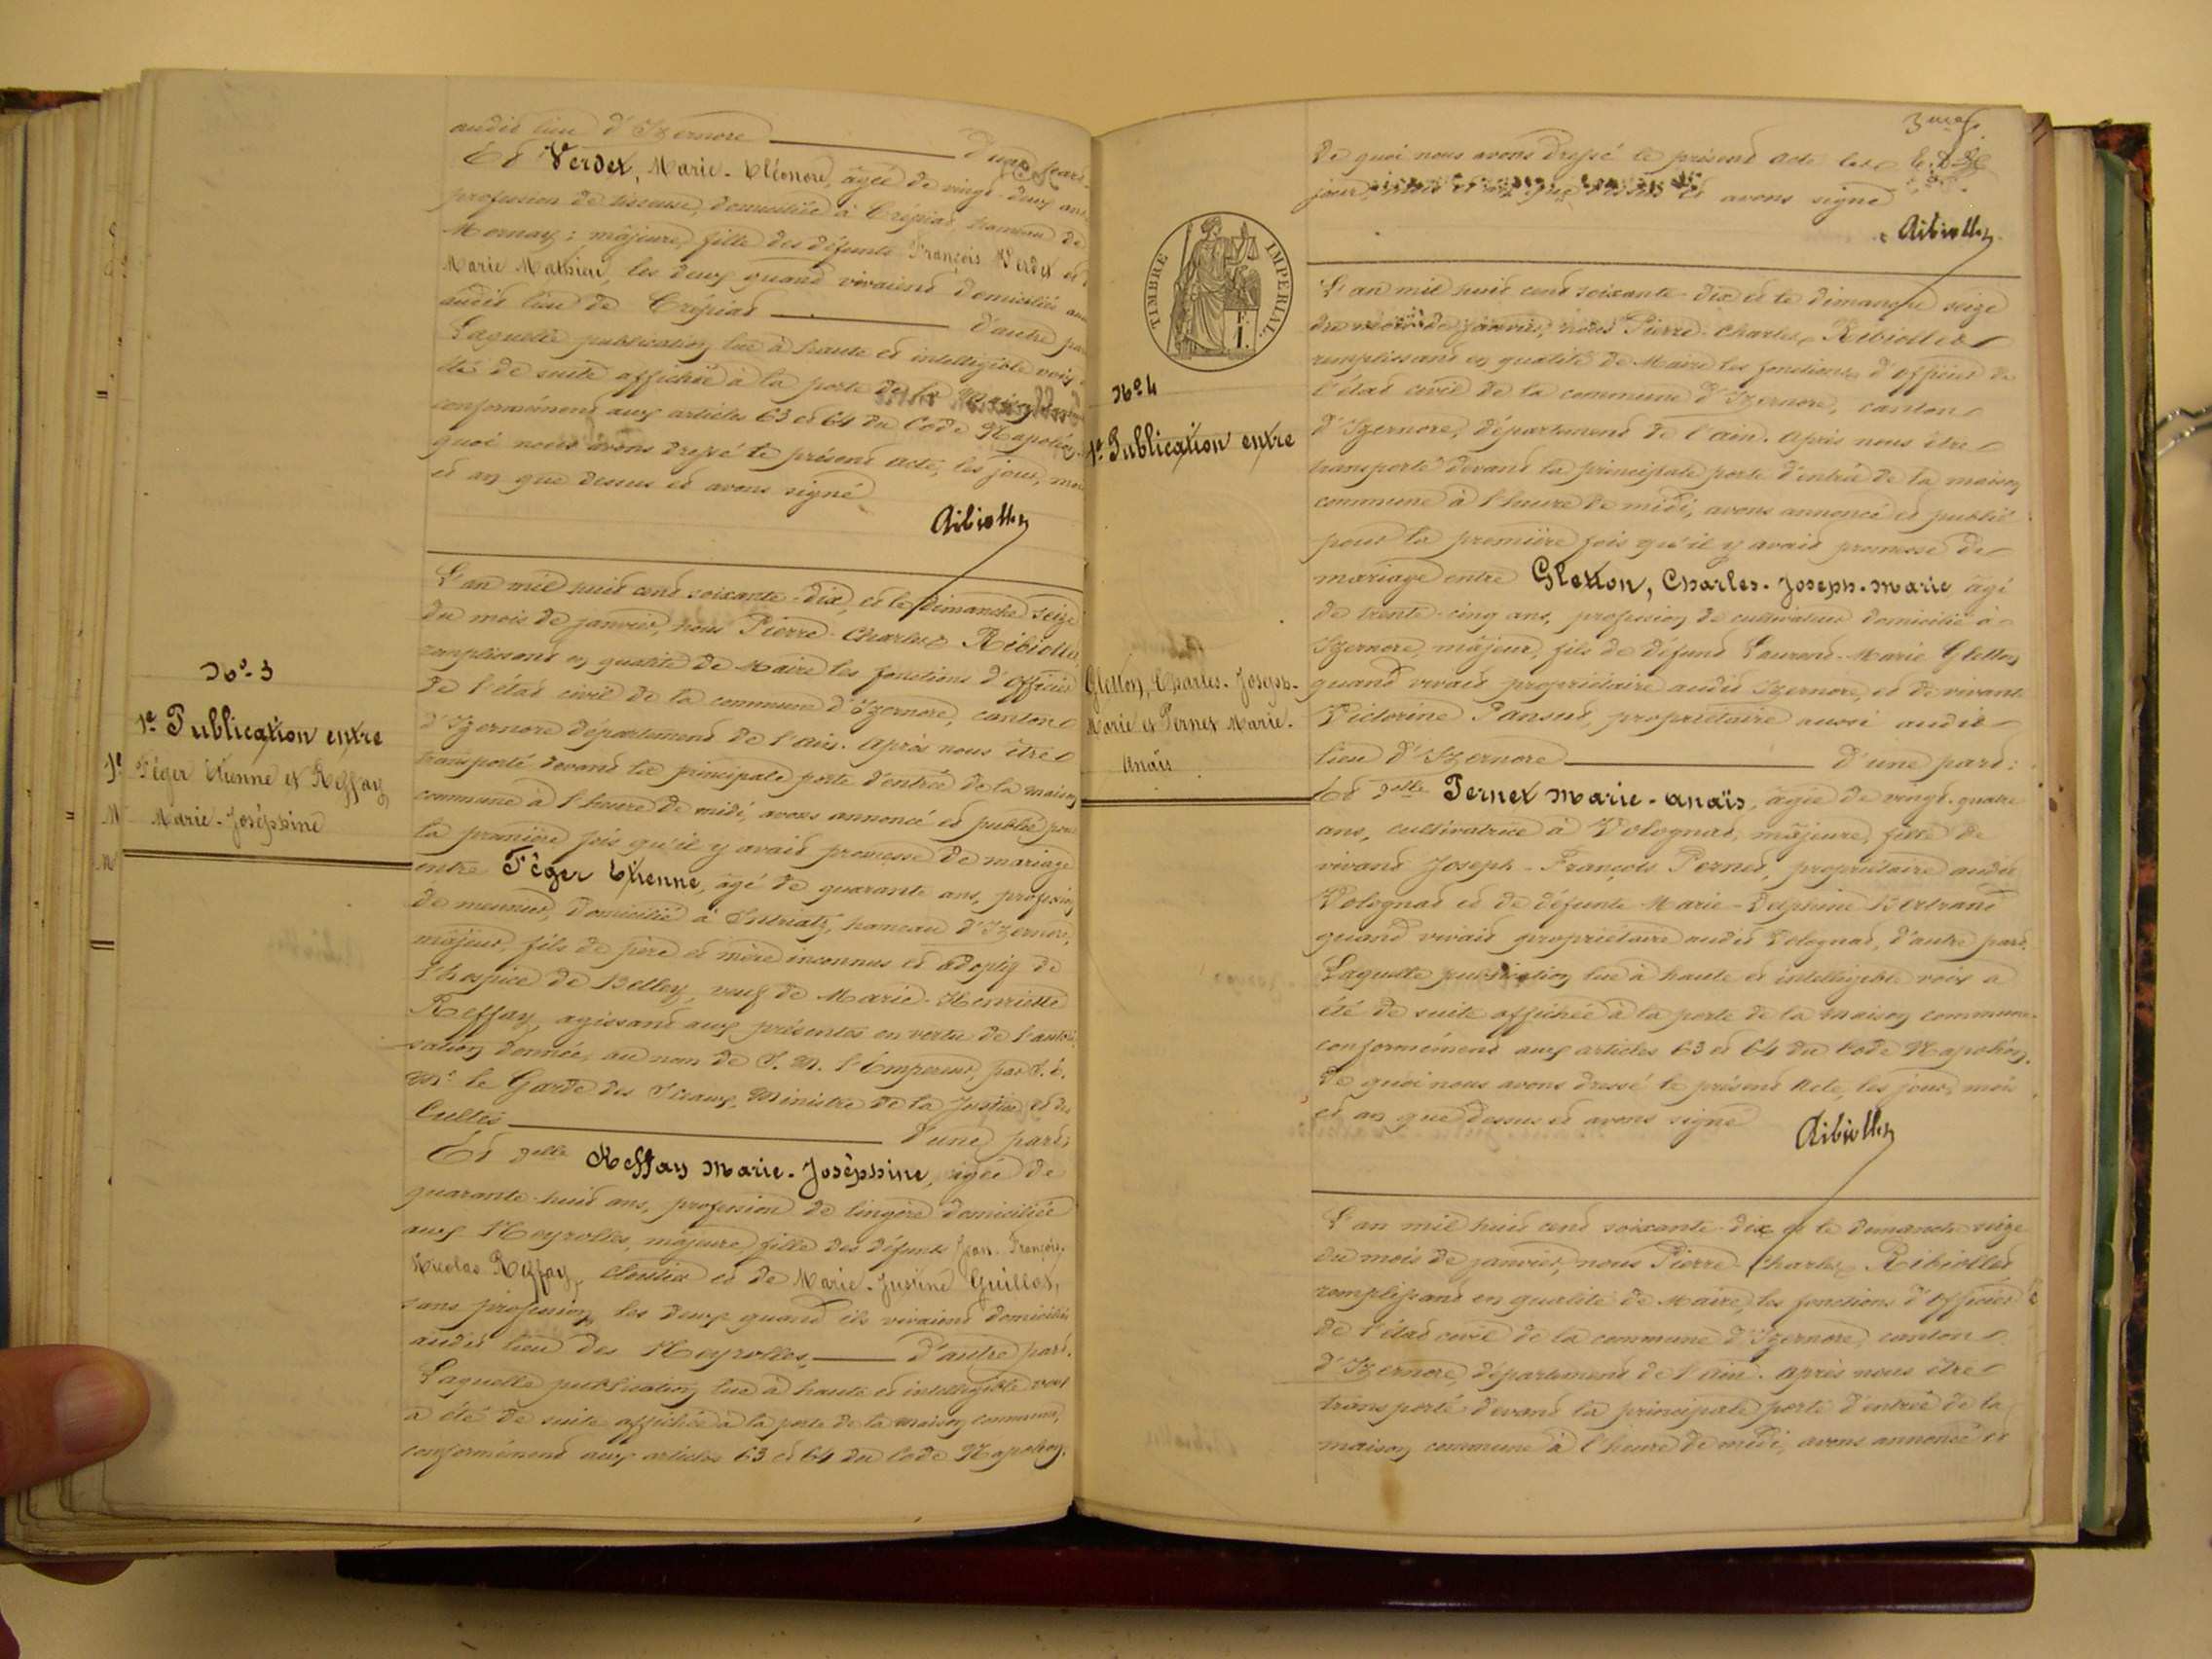 audit lieu d'Izernore d'une part
Et Verdet, Marie-Eléonore, âgée de vingt-deux ans
profession de tisseuse, domiciliée à Crépiat, hameau de
Mornay; majeure, fille des défunts François Verdet et
Marie Mathieu, les deux quand vivaient domiciliés au
audit lieu de Crépiat d'autre part
Laquelle publication lue à haute et intelligible voix a
été de suite affichée à la porte de la Maison
conformément aux articles 63 et 64 du Code Napoléon. De
quoi nous avons dressé le présent acte, les jour, mois
et an que dessus et avons signé
Ribiollet
No. 3
1e. Publication entre
Féger Etienne et Reffay
Marie-Joséphine
L'an mil huit cent soixante-dix, et le dimanche seize
du mois de janvier, nous Pierre-Charles Ribiollet,
remplissant en qualité de Maire les fonctions d'officier
de l'état civil de la commune d'Izernore, canton
d'Izernore département de l'Ain. Après nous être
transporté devant la principale porte d'entrée de la maison
commune à l'heure de midi, avons annoncé et publié pour
la première fois qu'il y avait promesse de mariage
entre Féger Etienne, âgé de quarante ans, profession
de meunier, domicilié à Intriatz, hameau d'Izernore,
majeur, fils de père et mère inconnus et adoptif de
l'hospice de Belley, veuf de Marie-Henriette
Reffay, agissant aux présentes en vertu de l'autori-
sation donnée, au nom de S. M. l'Empereur, par S. E.
Mr. le Garde des Sceaux, Ministre de la Justice et des
Cultes d'une part;
Et Delle Reffay Marie-Joséphine, âgée de
quarante-huit ans, profession de lingère domiciliée
aux Neyrolles, majeure, fille des défunts Jean-François
Nicolas Reffay, cloutier et de Marie-Justine Guillot,
sans profession, les deux quand ils vivaient domiciliés
audit lieu des Neyrolles, d'autre part.
Laquelle publication lue à haute et intelligible voix
a été de suite affichée à la porte de la maison commune,
conformément aux articles 63 et 64 du Code Napoléon.
De quoi nous avons dressé le présent acte les
jour, et avons signé
Ribiollet
TIMBRE IMPERIAL
F.
1.
No. 4
1e. Publication entre
Gletton, Charles-Joseph-
Marie et Pernet Marie-
Anaïs
L'an mil huit cent soixante-dix et le dimanche seize
du mois de janvier, nous Pierre-Charles Ribiollet
remplissant en qualité de Maire les fonctions d'officier de
l'état civil de la commune d'Izernore, canton
d'Izernore, département de l'Ain. Après nous être
transporté devant la principale porte d'entrée de la maison
commune à l'heure de midi, avons annoncé et publié
pour la première fois qu'il y avait promesse de
mariage entre Gletton, Charles-Joseph-Marie âgé
de trente-cinq ans, profession de cultivateur domicilié à
Izernore, majeur, fils de défunt Laurent-Marie Gletton
quand vivait propriétaire audit Izernore, et de vivante
Victorine Pansut, propriétaire aussi audit
lieu d'Izernore d'une part:
Et Delle Pernet Marie-Anaïs, âgée de vingt-quatre
ans, cultivatrice à Volognat, majeure, fille de
vivant Joseph-François Pernet, propriétaire audit
Volognat et de défunte Marie-Delphine Bertrand
quand vivait propriétaire audit Volognat, d'autre part.
Laquelle publication lue à haute et intelligible voix a
été de suite affichée à la porte de la maison commune
conformément aux articles 63 et 64 du Code Napoléon.
De quoi nous avons dressé le présent Acte, les jour, mois
et an que dessus et avons signé
Ribiollet
L'an mil huit cent soixante-dix et le dimanche seize
du mois de janvier, nous Pierre-Charles Ribiollet
remplissant en qualité de Maire, les fonctions d'officier
de l'état civil de la commune d'Izernore, canton
d'Izernore, département de l'Ain. Après nous être
transporté devant la principale porte d'entrée de la
maison commune à l'heure de midi, avons annoncé et